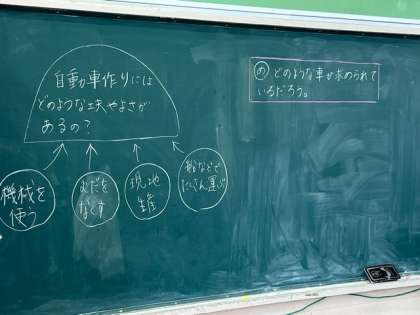 自動車作りには
どのような工夫やよさが
あるの?
機械を
使う
むだを
なくす
現地
生産
船などで
たくさん運ぶ
め どのような車が求められて
いるだろう。